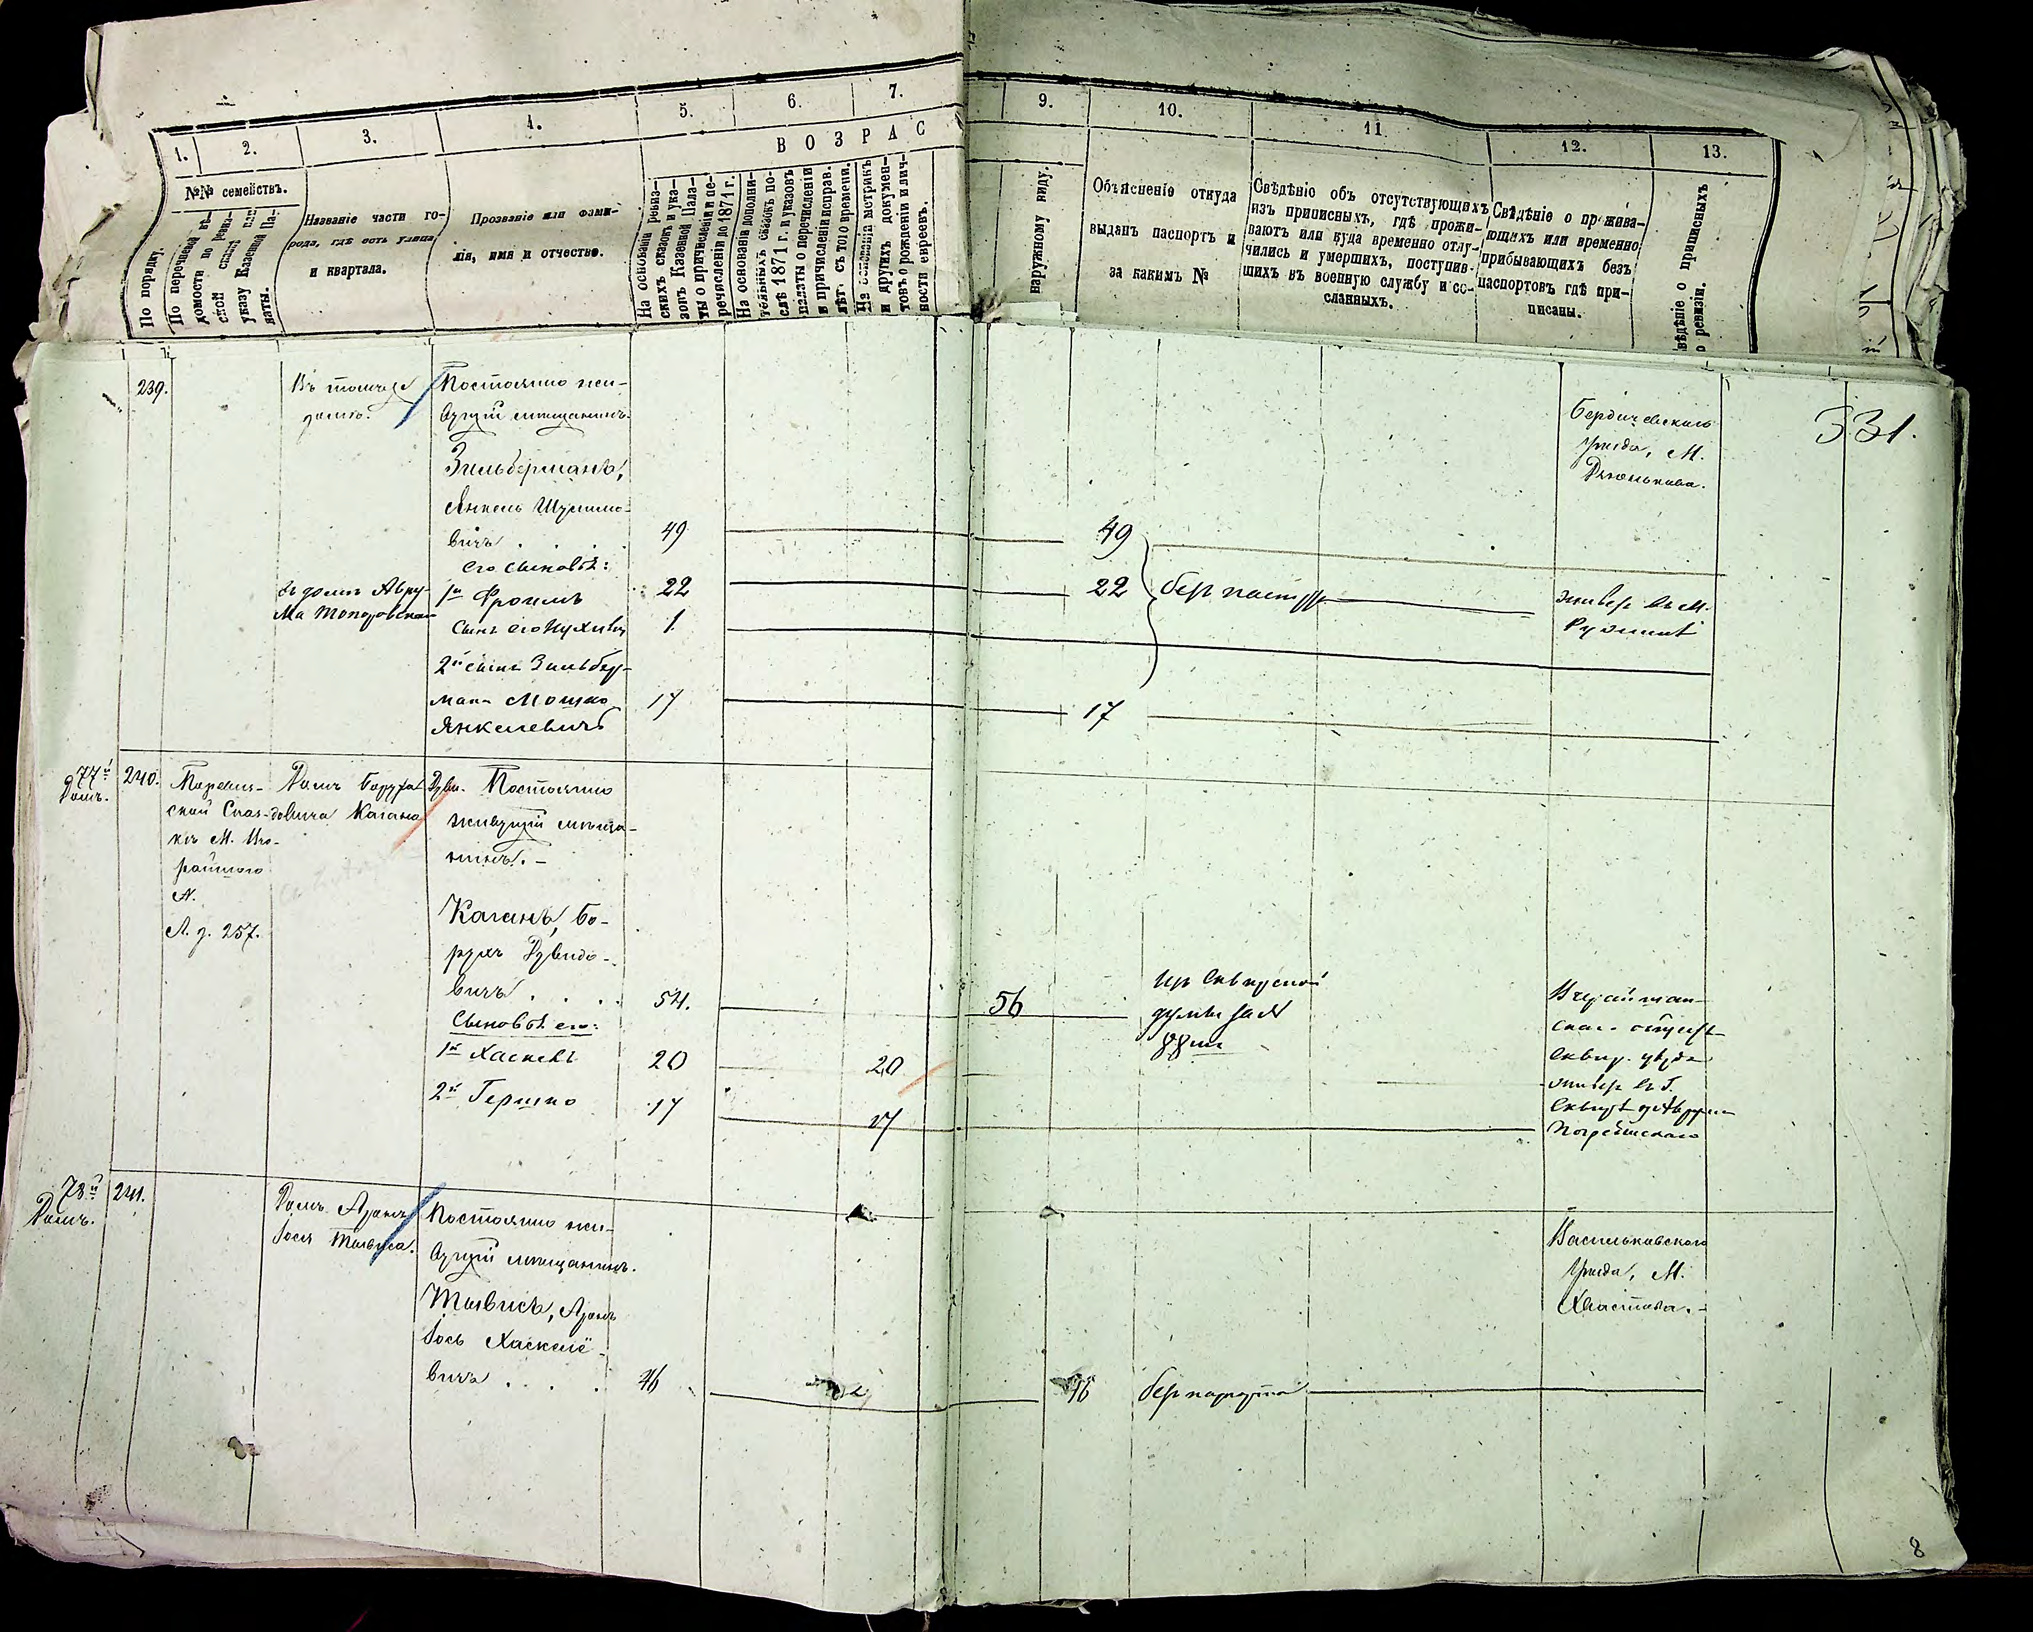 1.
2.
3.
4.
5.
6.
7.
9.
10.
11.
12.
13.
ВОЗРАС
№№ семействъ.
По порядку.
По перечневой вѣ-
домости по реви-
ской сказкѣ или
указу Казенной Па-
латы.
Названіе части го-
рода, гдѣ есть улица
и квартала.
Прозваніе или фами-
лія, имя и отчество.
На основаніи ревиз-
скихъ сказокъ и ука-
зовъ Казенной Пала-
ты о причисленіи и пе-
речисленіи до 1871 г.
На основаніи дополни-
тельныхъ сказокъ по-
слѣ 1871 г. и указовъ
палаты о перечисленіи
и причисленіи исправ.
лѣт. съ того времени.
На основаніи метрикъ
и другихъ докумен-
товъ о рожденіи и лич-
ности евреевъ.
наружному виду.
Объясненіе откуда
выданъ паспортъ и
за какимъ №
Свѣдѣніе объ отсутствующихъ
изъ приписныхъ, гдѣ прожи-
ваютъ или куда временно отлу-
чились и умершихъ, поступив-
шихъ въ военную службу и со-
сланныхъ.
Свѣдѣніе о прожива-
ющихъ или временно
прибывающихъ безъ
паспортовъ гдѣ при-
писаны.
вѣдѣніе о приписныхъ
о ревизіи.
331.
239.
Въ томъ же
домѣ.
Постоянно жи-
вущій мѣщанинъ.
Зильберманъ,
Янкель Шулимо-
вичъ . . . .
49
49
его сыновья:
въ домѣ Авру-
ма Топоровска
1й Фроимъ
22
22
без паспорт
сынъ его Нухимъ
1
2й сынъ Зильбер-
манъ Мошко
17
17
Янкелевичъ
Бердичевскаго
Уѣзда, М.
Дзюнькова.
живетъ въ М.
Ружинѣ
77й
Домъ.
240.
ской Сказ-
къ М. Вче-
райшаго
№.
Л. д. 257.
Домъ Боруха
Довича Кагана
Постоянно
живущій мѣща-
нинъ. –
Каганъ, Бо-
рухъ Дувидо-
вичъ . . . .
54.
56
Сыновья его:
1й Хаскель
20
20
2й Гершко
17
17
из Сквирской
думы за №
88
Вчерайшан-
скаго общест
Сквир. уѣзда
живет в г.
Сквирѣ у Аврум
Погребискаго
78й
Домъ.
241.
Домъ Арона
Іося Тывиса.
Постоянно жи-
вущій мѣщанинъ.
Тывисъ, Аронъ
Іось Хаскелё-
вичъ . . . .
46
46
без паспорта
Васильковскаго
Уѣзда, М.
Хвастова. –
8